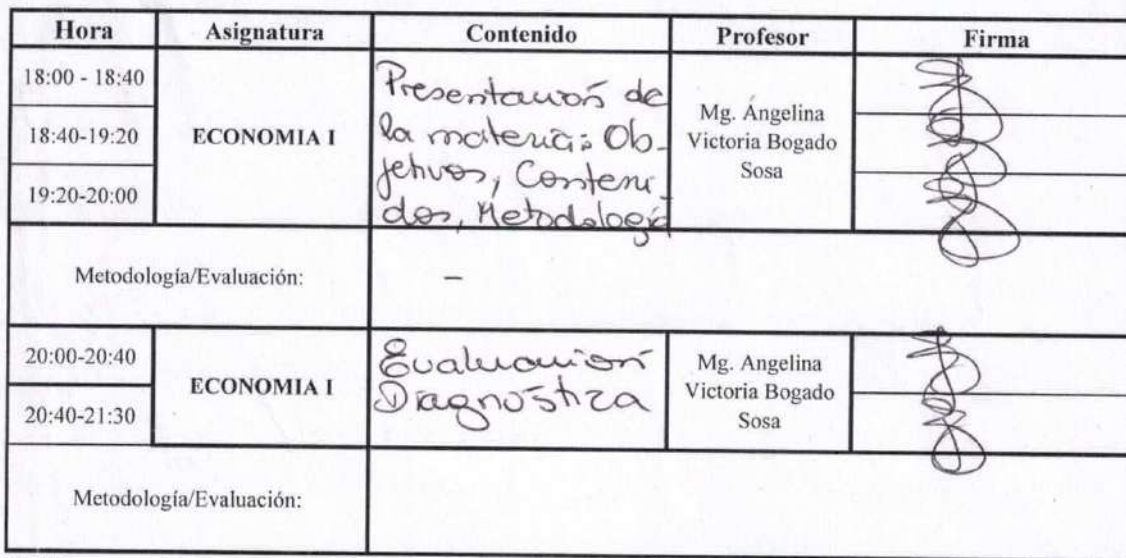 Hora Asignatura Contenido Profesor Firma
18:00 - 18:40
18:40-19:20
19:20-20:00
ECONOMIA I
Presentación de
la materia: Ob-
jetivos, Conteni-
dos, Metodología
Mg. Ángelina
Victoria Bogado
Sosa
Metodología/Evaluación:
–
20:00-20:40
20:40-21:30
ECONOMIA I
Evaluación
Diagnóstica
Mg. Angelina
Victoria Bogado
Sosa
Metodología/Evaluación: